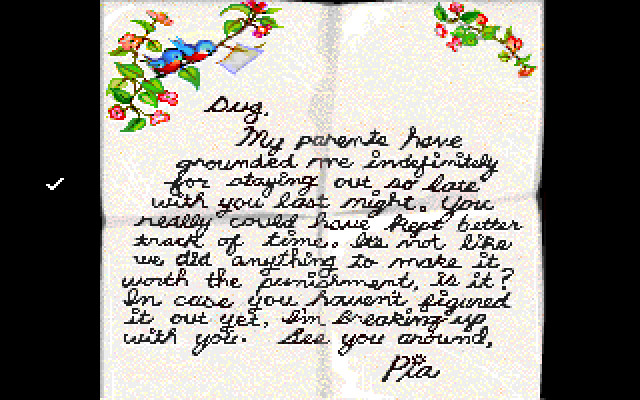 Dug,
My parents have
grounded me indefinitely
for staying out so late
with you last night. You
really could have kept better
track of time. Its not like
we did anything to make it
worth the punishment, is it?
In case you haven't figured
it out yet, I'm breaking up
with you. See you around,
Pia